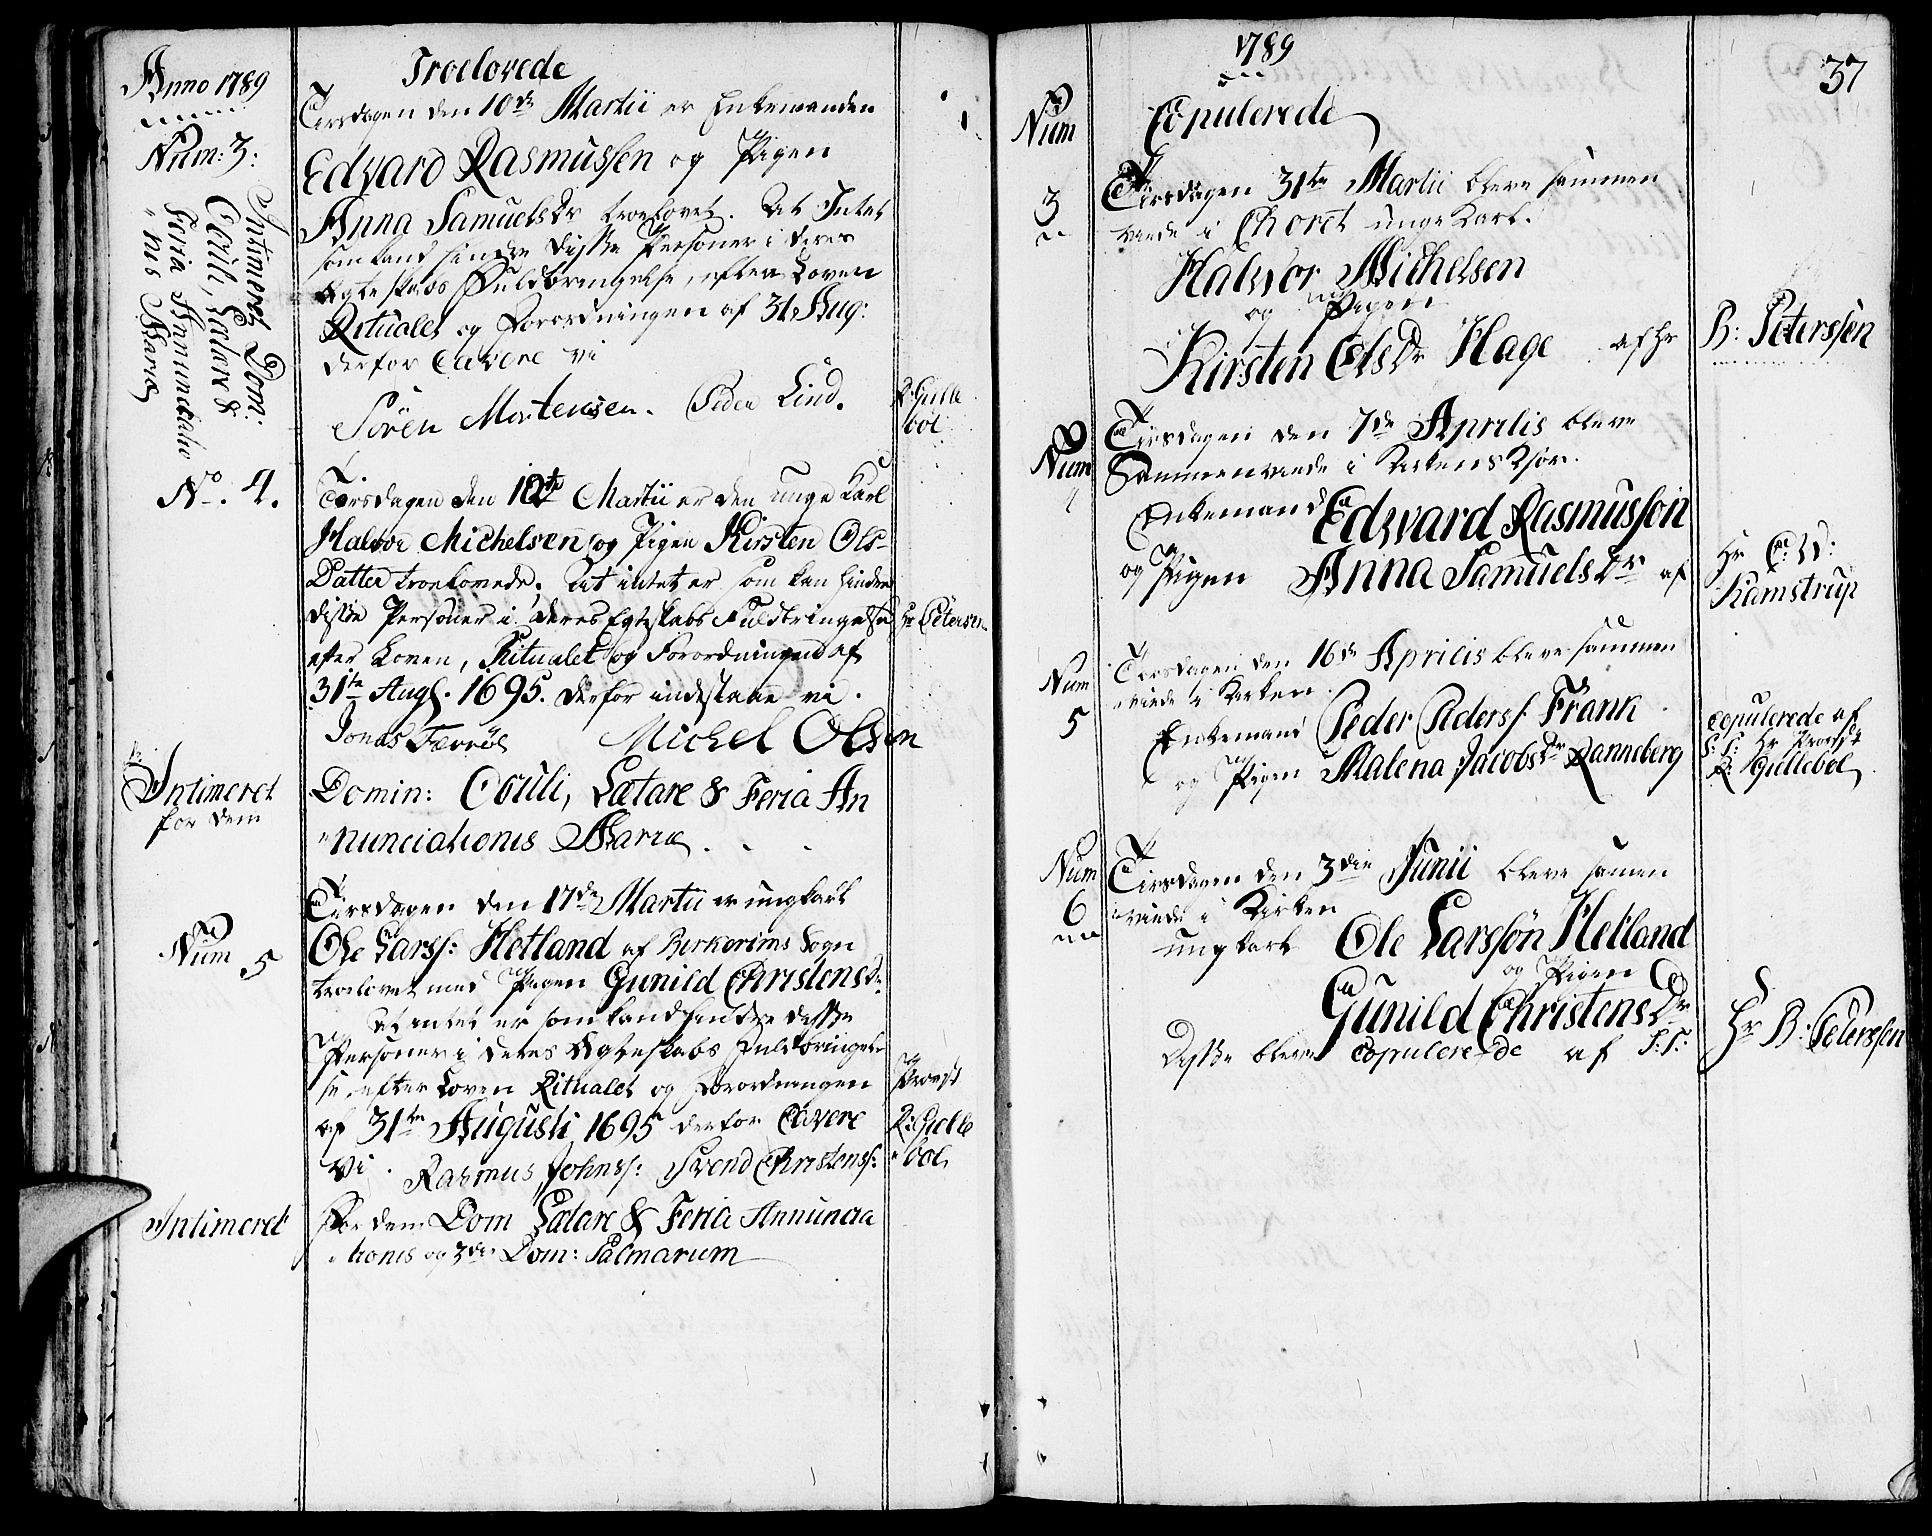 Anno 1789
Troelovede
Num: 3:
Intimeret Dom:
Oculi, Lætare &
Feria Annunciatio
"nis Mariæ
Tirsdagen den 10de Martii er Enkemanden
Edvard Rasmussen og Pigen
Anna Samuelsdr troelovet. At Intet
som kand hindre disse Personer i deres
Ægteskabs Fuldbringelse, efter Loven
Ritualet og Forordningen af 31 Aug:
derfor Cavere vi
Sören Mortensen. Peder Lind.
R: Gulle
bol
No. 4.
Tirsdagen den 10de Martii er den unge Karl
Halvor Michelsen og Pigen Kirsten Ols-
Datter troelovede. At intet er som kan hindre
disse Personer i deres Egteskabs Fuldbringelse
Hr Petersen
efter Loven, Ritualet og Forordningen af
31te Augs. 1695. derfor indestaae vi.
Jonas Færröe Michel Olsen
Intimeret
for dem
Domin: Oculi, Lætare & Feria An
"nunciationis Mariæ.
Num 5
Tirsdagen den 17de Martii er ungkarl
Ole Larss: Hetland af Birkerims Sogn
troelovet med Pigen Gunild Christensdr
At intet er som kand hindre disse
Personer i deres Ægteskabs Fuldbringel-
se, efter Loven Ritualet og Forordningen
af 31te Augusti 1695 derfor Cavere
Vi. Rasmus Johnss: Svend Christenss:
Provst
R: Gulle
"bol
Intimeret
for dem Dom Lætare & Feria Annuncia
"tionis og 3die Dom: Palmarum
1789
37
Num
Copulerede
3
Tirsdagen 31te Martii bleve sammen
viede i Choret unge Karl.
Halvor Michelsen
og Pigen
Kirsten OlsDr Hage af Hr
B: Peterssen
Num
4
Tirsdagen den 7de Aprilis bleve
Sammenviede i Kirkens Chor.
Enkemand Edvard Rasmussøn
og Pigen Anna SamuelsDr af
Hr C: W:
Kamstrup
Num
5
Torsdagen den 16de Aprilis bleve sammen
"viede i Kirken.
Enkemand Peder Peders. Frank
og Pigen Malena JacobsDr Ranneberg
copulerede af
S: T: Hr Provst
R: Gullebol
Num
6
Tirsdagen den 3die Junii bleve samen
"viede i Kirken
ungkarl Ole Larssøn Hetland
og Pigen
Gunild ChristensDr
Disse bleve copulerede af S: T:
Hr B: Peterssen